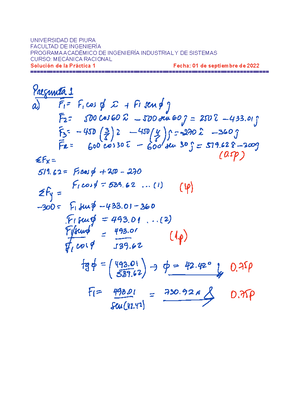 UNIVERSIDAD DE PIURA
FACULTAD DE INGENIERÍA
PROGRAMA ACADÉMICO DE INGENIERÍA INDUSTRIAL Y DE SISTEMAS
CURSO: MECÁNICA RACIONAL
Solución de la Práctica 1 Fecha: 01 de septiembre de 2022
Pregunta 1
a) F1 = F1 cos φ i + F1 sen φ j
F2 = 500 cos 60 i - 500 sen 60 j = 250 i - 433.01 j
F3 = -450 (3/5) i - 450 (4/5) j = -270 i - 360 j
FR = 600 cos 30 i - 600 sen 30 j = 519.62 i - 300 j
(0.5p)
ΣFx =
519.62 = F1 cos φ + 250 - 270
F1 cos φ = 539.62 ... (1) (1p)
ΣFy =
-300 = F1 sen φ - 433.01 - 360
F1 sen φ = 493.01 ... (2)
F1 sen φ / F1 cos φ = 493.01 / 539.62 (1p)
tg φ = (493.01 / 539.62) → φ = 42.42° 0.75p
F1 = 493.01 / sen(42.42) = 730.92 N 0.75p